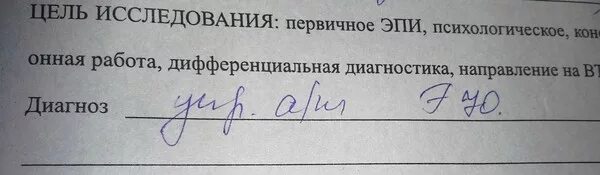 ЦЕЛЬ ИССЛЕДОВАНИЯ: первичное ЭПИ, психологическое, кон
онная работа, дифференциальная диагностика, направление на ВТ
Диагноз F 70.